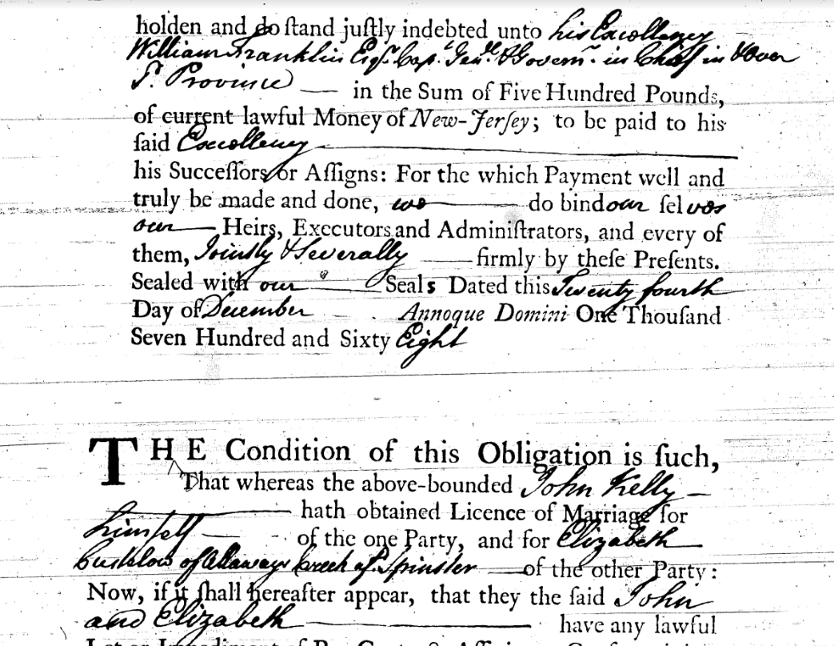 holden and do ſtand juſtly indebted unto his Excellency
William Franklin Esqr. Capt. Genl. & Governr. in Chief in & over
sd. Province — in the Sum of Five Hundred Pounds,
of current lawful Money of New-Jerſey; to be paid to his
ſaid Excellency
his Succeſſors or Aſſigns: For the which Payment well and
truly be made and done, we do bind our ſelves
our Heirs, Executors and Adminiſtrators, and every of
them, Jointly & Severally firmly by theſe Preſents.
Sealed with our Seals Dated this Twenty fourth
Day of December Annoque Domini One Thouſand
Seven Hundred and Sixty Eight
THE Condition of this Obligation is ſuch,
That whereas the above-bounded John Kelly
hath obtained Licence of Marriage for
himself of the one Party, and for Elizabeth
of Alloways Creek Spinster of the other Party:
Now, if it ſhall hereafter appear, that they the ſaid John
and Elizabeth have any lawful